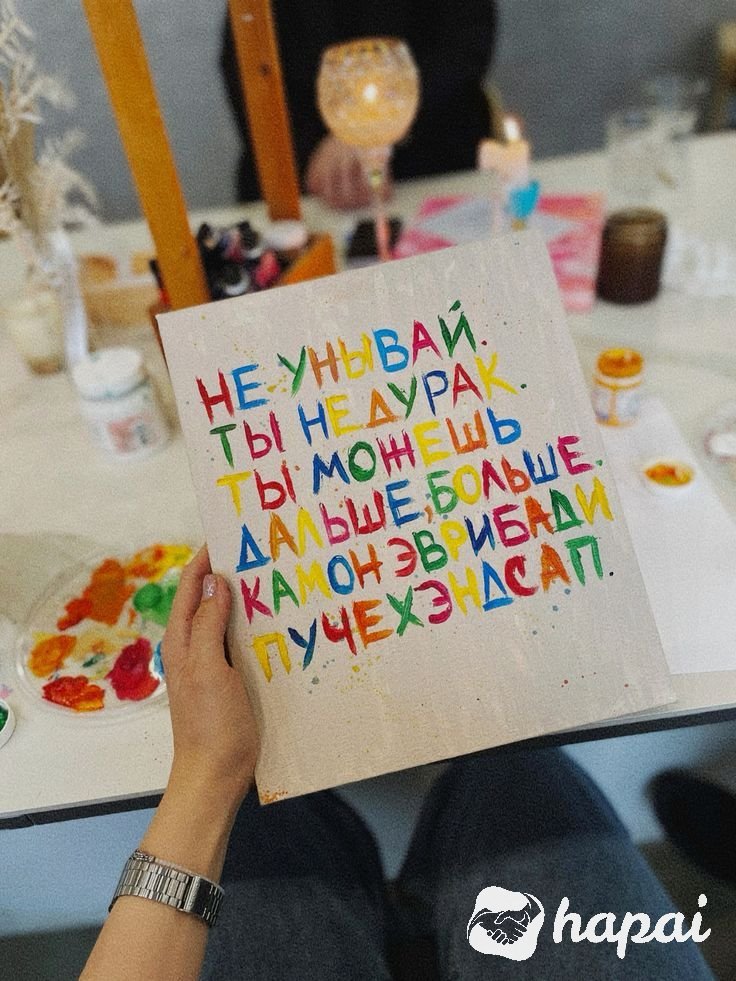 НЕ УНЫВАЙ.
ТЫ НЕ ДУРАК.
ТЫ МОЖЕШЬ
ДАЛЬШЕ, БОЛЬШЕ.
КАМОН ЭВРИБАДИ
ПУЧЕХЭНДСАП.
hapai